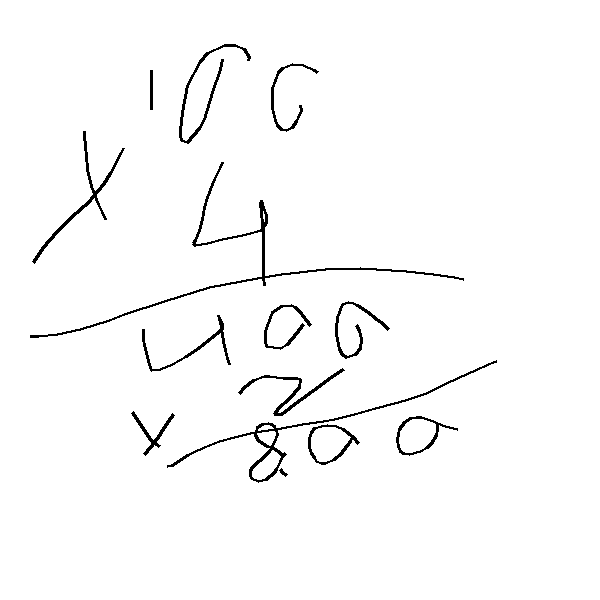 100
× 4
400
× 2
800